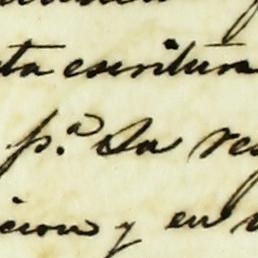 ta escritura
p.ª Su res
cion y en